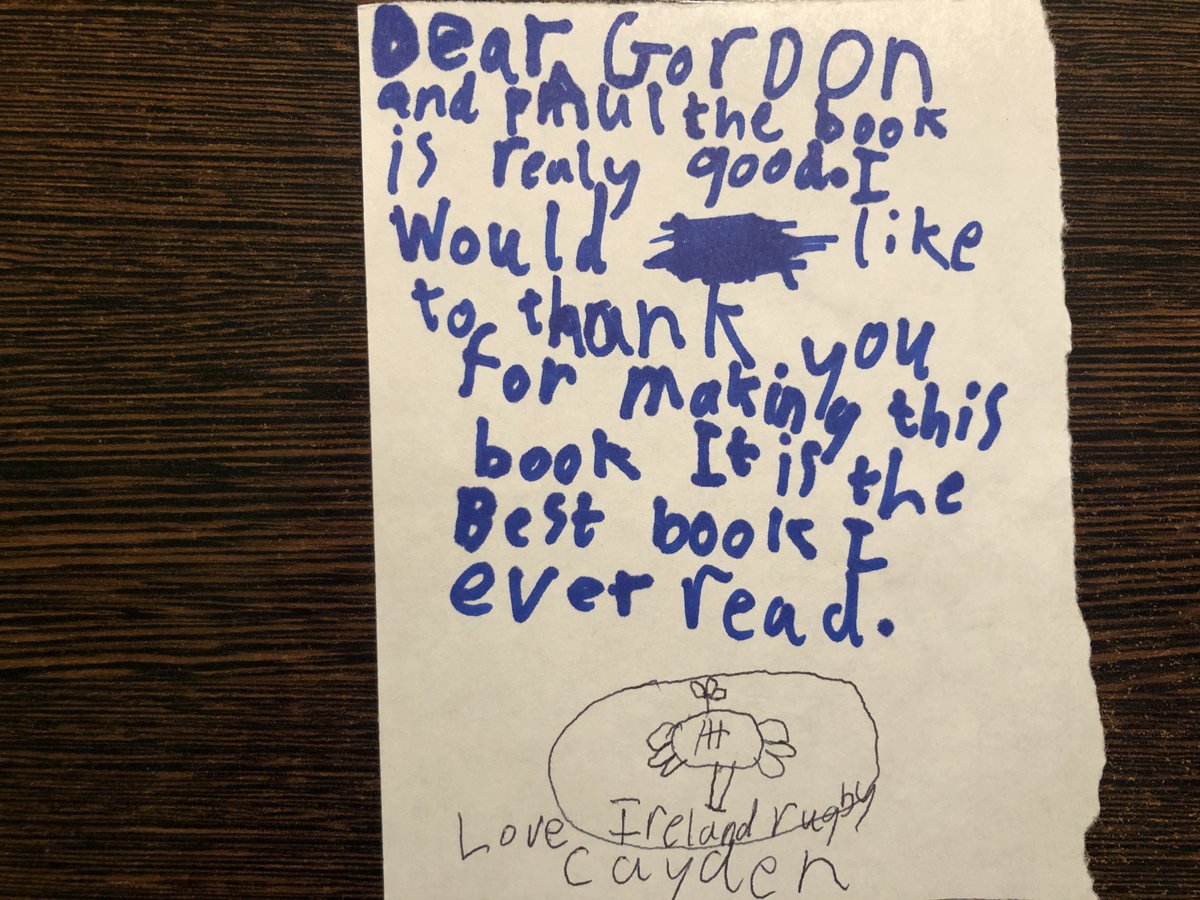 Dear GorDOn
and pAul the book
is realy good. I
Would like
to thank you
for making this
book It is the
Best book I
ever read.
Love Ireland rugby
cayden